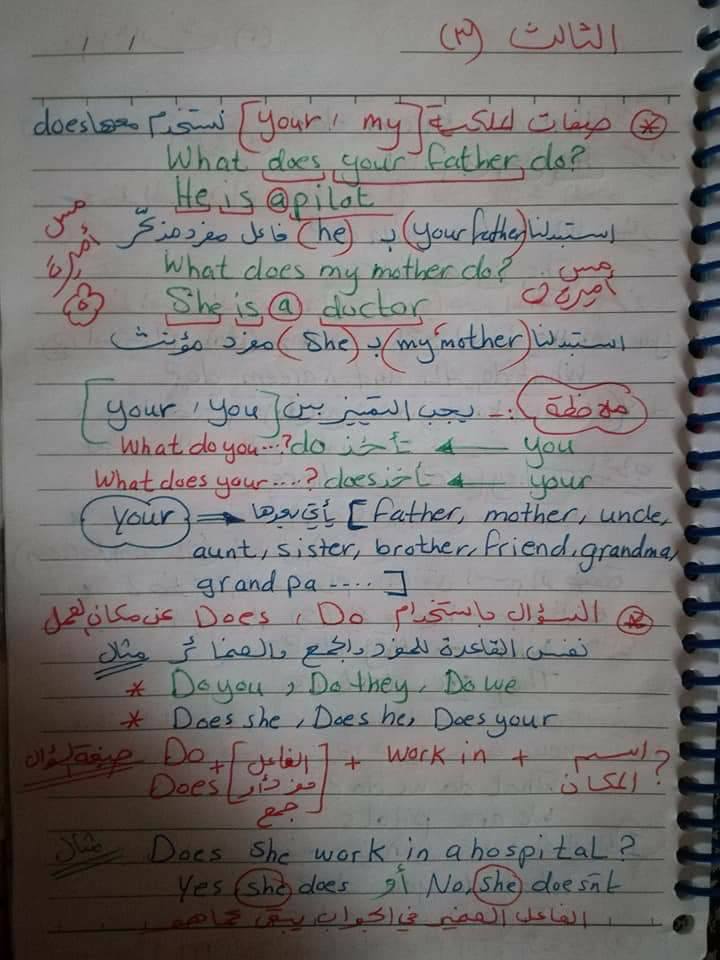 الثالث (٣)
/ /
* صفات الملكية [your , my] نستخدم معها does
What does your father do?
He is a pilot
استبدلنا (your father) بـ (he) فاعل مفرد مذكر
مس أميرة
What does my mother do?
مس أميرة ن
She is a doctor
٥
استبدلنا (my mother) بـ (She) مفرد مؤنث
ملاحظة :- يجب التمييز بين [your , you]
you ← تأخذ do What do you ...?
your ← تأخذ does What does your ....?
your ⇒ يأتي بعدها [Father, mother, uncle,
aunt, sister, brother, friend, grandma,
grand pa ----]
* السؤال باستخدام Does , Do عن مكان العمل
نفس القاعدة للمفرد والجمع والضمائر مثال
* Do you , Do they , Do we
* Does she , Does he, Does your
صيغة السؤال Do + [الفاعل + work in + اسم
Does [مفرد أو المكان ?
جمع]
مثال Does she work in a hospital?
Yes she does أو No, she doesn't
الفاعل الضمير في الجواب يبقى كما هو